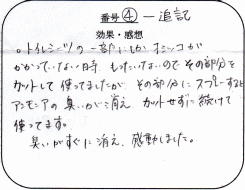 番号④ー追記
効果・感想
○トイレシーツの一部にしかオシッコが
かかっていない時、もったいないのでその部分を
カットして使ってましたが、その部分にスプレーすると
アンモニアの臭いが消え、カットせずに続けて
使ってます。
臭いがすぐに消え、感動しました。